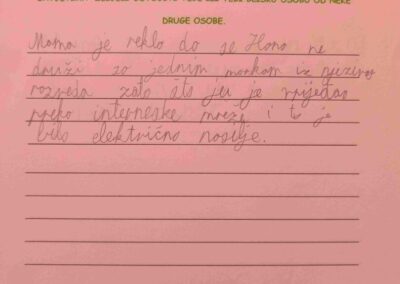 DRUGE OSOBE.
Mama je rekla da se Hana ne
druži sa jednim, momkom iz njezinog
razreda zato što ju je vrijeđao
preko interneske mreže i to je
bilo električno nasilje.